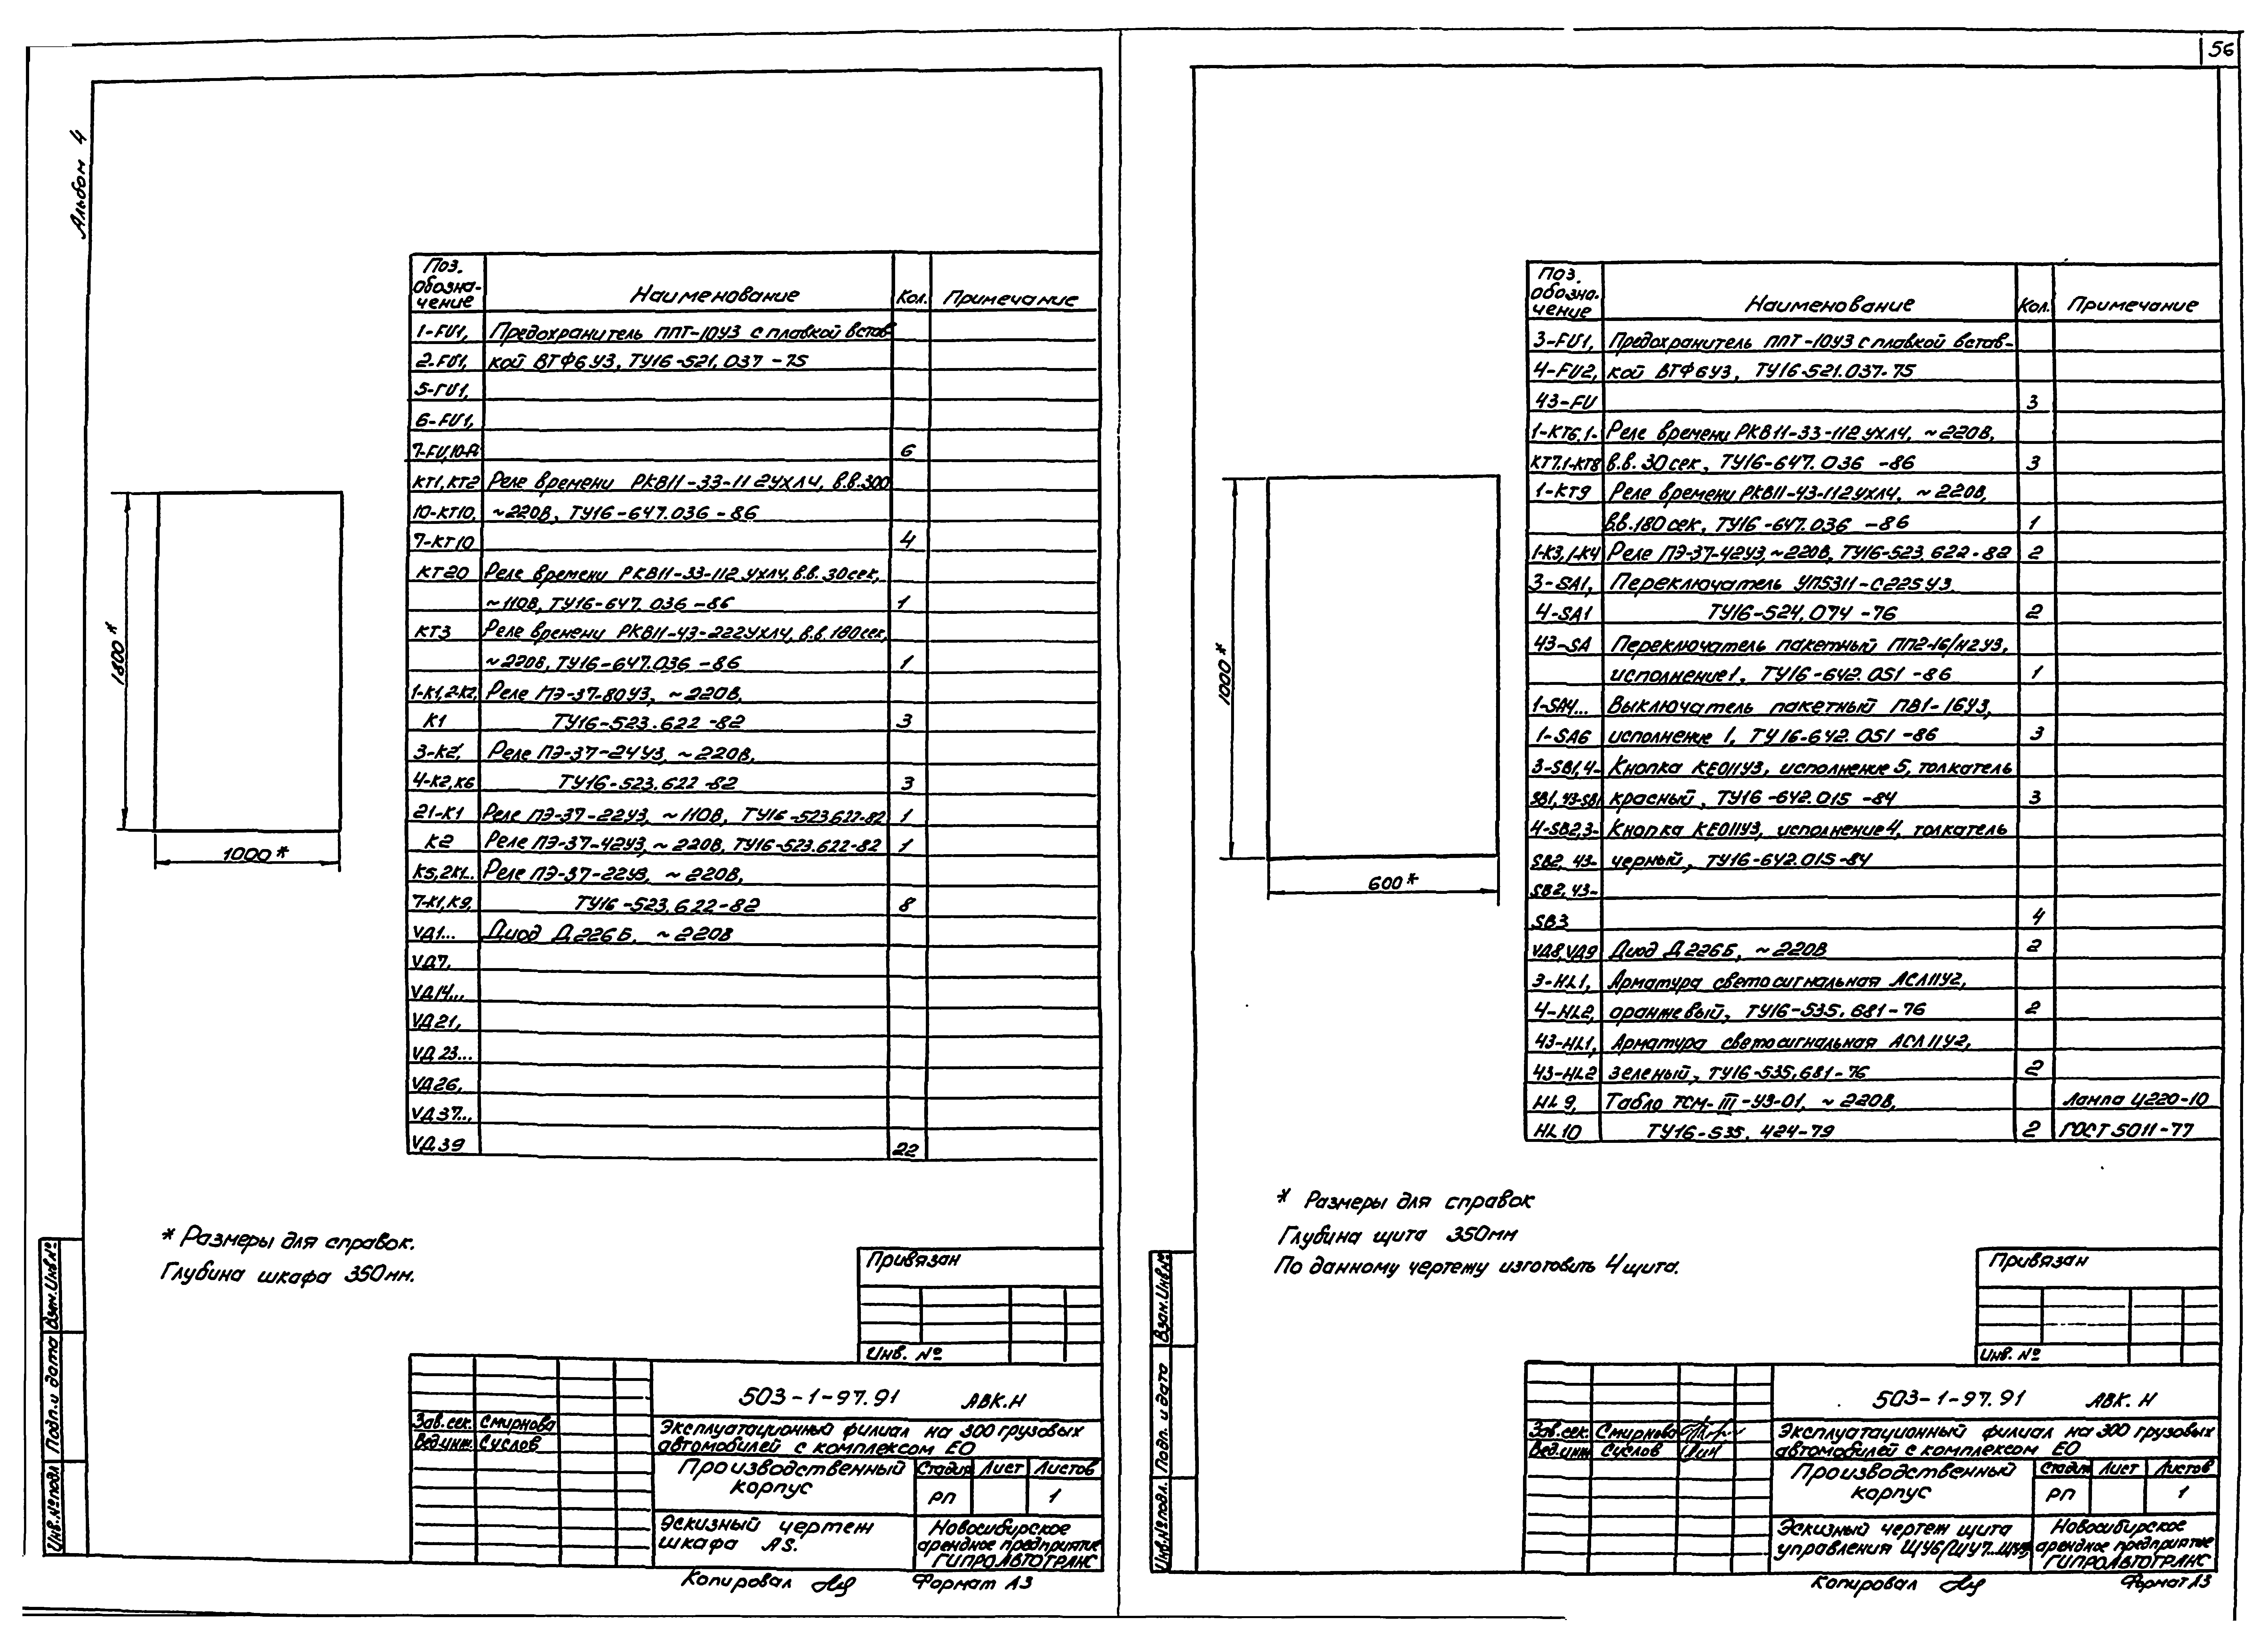 56
Альбом 4
Поз. обозна-чение Наименование Кол. Примечание
1-FU1, Предохранитель ППТ-10У3 с плавкой встав
2-FU1, кой ВТФ6У3, ТУ16-521.037-75
5-FU1,
6-FU1,
7-FU,10-F 6
КТ1, КТ2 Реле времени РКВ11-33-112УХЛ4, в.в.300
10-КТ10, ~220В, ТУ16-647.036-86
7-КТ10 4
КТ20 Реле времени РКВ11-33-112 УХЛ4, в.в. 30сек,
~110В, ТУ16-647.036-86 1
КТ3 Реле времени РКВ11-43-222УХЛ4, в.в. 180сек,
~220В, ТУ16-647.036-86 1
1-К1,2-К2, Реле ПЭ-37-80У3, ~220В,
К1 ТУ16-523.622-82 3
3-К2, Реле ПЭ-37-24У3, ~220В,
4-К2,К6 ТУ16-523.622-82 3
21-К1 Реле ПЭ-37-22У3, ~110В, ТУ16-523.622-82 1
К2 Реле ПЭ-37-42У3, ~220В, ТУ16-523.622-82 1
К5,2К1... Реле ПЭ-37-22У3, ~220В,
7-К1,К9, ТУ16-523.622-82 8
VД1... Диод Д226Б, ~220В
VД7,
VД14...
VД21,
VД23...
VД26,
VД37...
VД39 22
1800*
1000*
* Размеры для справок.
Глубина шкафа 350мм.
Привязан
Инв. №
503-1-97.91 АВК.Н
Зав.сек. Смирнова
Вед.инж. Суслов
Эксплуатационный филиал на 300 грузовых
автомобилей с комплексом ЕО
Производственный
корпус
Стадия Лист Листов
РП 1
Эскизный чертеж
шкафа AS.
Новосибирское
арендное предприятие
ГИПРОАВТОТРАНС
Копировал Формат А3
Взам.Инв.№
Подп. и дата
Инв.№подл
Поз. обозна-чение Наименование Кол. Примечание
3-FU1, Предохранитель ППТ-10У3 с плавкой встав-
4-FU2, кой ВТФ6У3, ТУ16-521.037-75
43-FU 3
1-КТ6,1- Реле времени РКВ11-33-112УХЛ4, ~220В,
КТ7,1-КТ8 в.в. 30сек, ТУ16-647.036-86 3
1-КТ9 Реле времени РКВ11-43-112УХЛ4, ~220В,
в.в.180сек, ТУ16-647.036-86 1
1-К3,1-К4 Реле ПЭ-37-42У3,~220В, ТУ16-523.622-82 2
3-SA1, Переключатель УП5311-С225У3,
4-SA1 ТУ16-524.074-76 2
43-SA Переключатель пакетный ПП2-16/Н2У3,
исполнение1, ТУ16-642.051-86 1
1-SA4... Выключатель пакетный ПВ1-16У3,
1-SA6 исполнение 1, ТУ16-642.051-86 3
3-SB1,4- Кнопка КЕ011У3, исполнение 5, толкатель
SB1,43-SB1 красный, ТУ16-642.015-84 3
4-SB2,3- Кнопка КЕ011У3, исполнение4, толкатель
SB2, 43- черный, ТУ16-642.015-84
SB2,43-
SB3 4
VД8,VД9 Диод Д226Б, ~220В 2
3-HL1, Арматура светосигнальная АСЛ11У2,
4-HL2, оранжевый, ТУ16-535.681-76 2
43-HL1, Арматура светосигнальная АСЛ11У2,
43-HL2 зеленый, ТУ16-535.681-76 2
HL9, Табло ТСМ-III-У3-01, ~220В, Лампа Ц220-10
HL10 ТУ16-535.424-79 2 ГОСТ 5011-77
1000*
600*
* Размеры для справок
Глубина щита 350мм
По данному чертежу изготовить 4щита.
Привязан
Инв. №
503-1-97.91 АВК.Н
Зав.сек. Смирнова
Вед.инж Суслов
Эксплуатационный филиал на 300 грузовых
автомобилей с комплексом ЕО
Производственный
корпус
Стадия Лист Листов
РП 1
Эскизный чертеж щита
управления ЩУ6/ЩУ7...
Новосибирское
арендное предприятие
ГИПРОАВТОТРАНС
Копировал Формат А3
Взам.Инв.№
Подп. и дата
Инв.№подл.